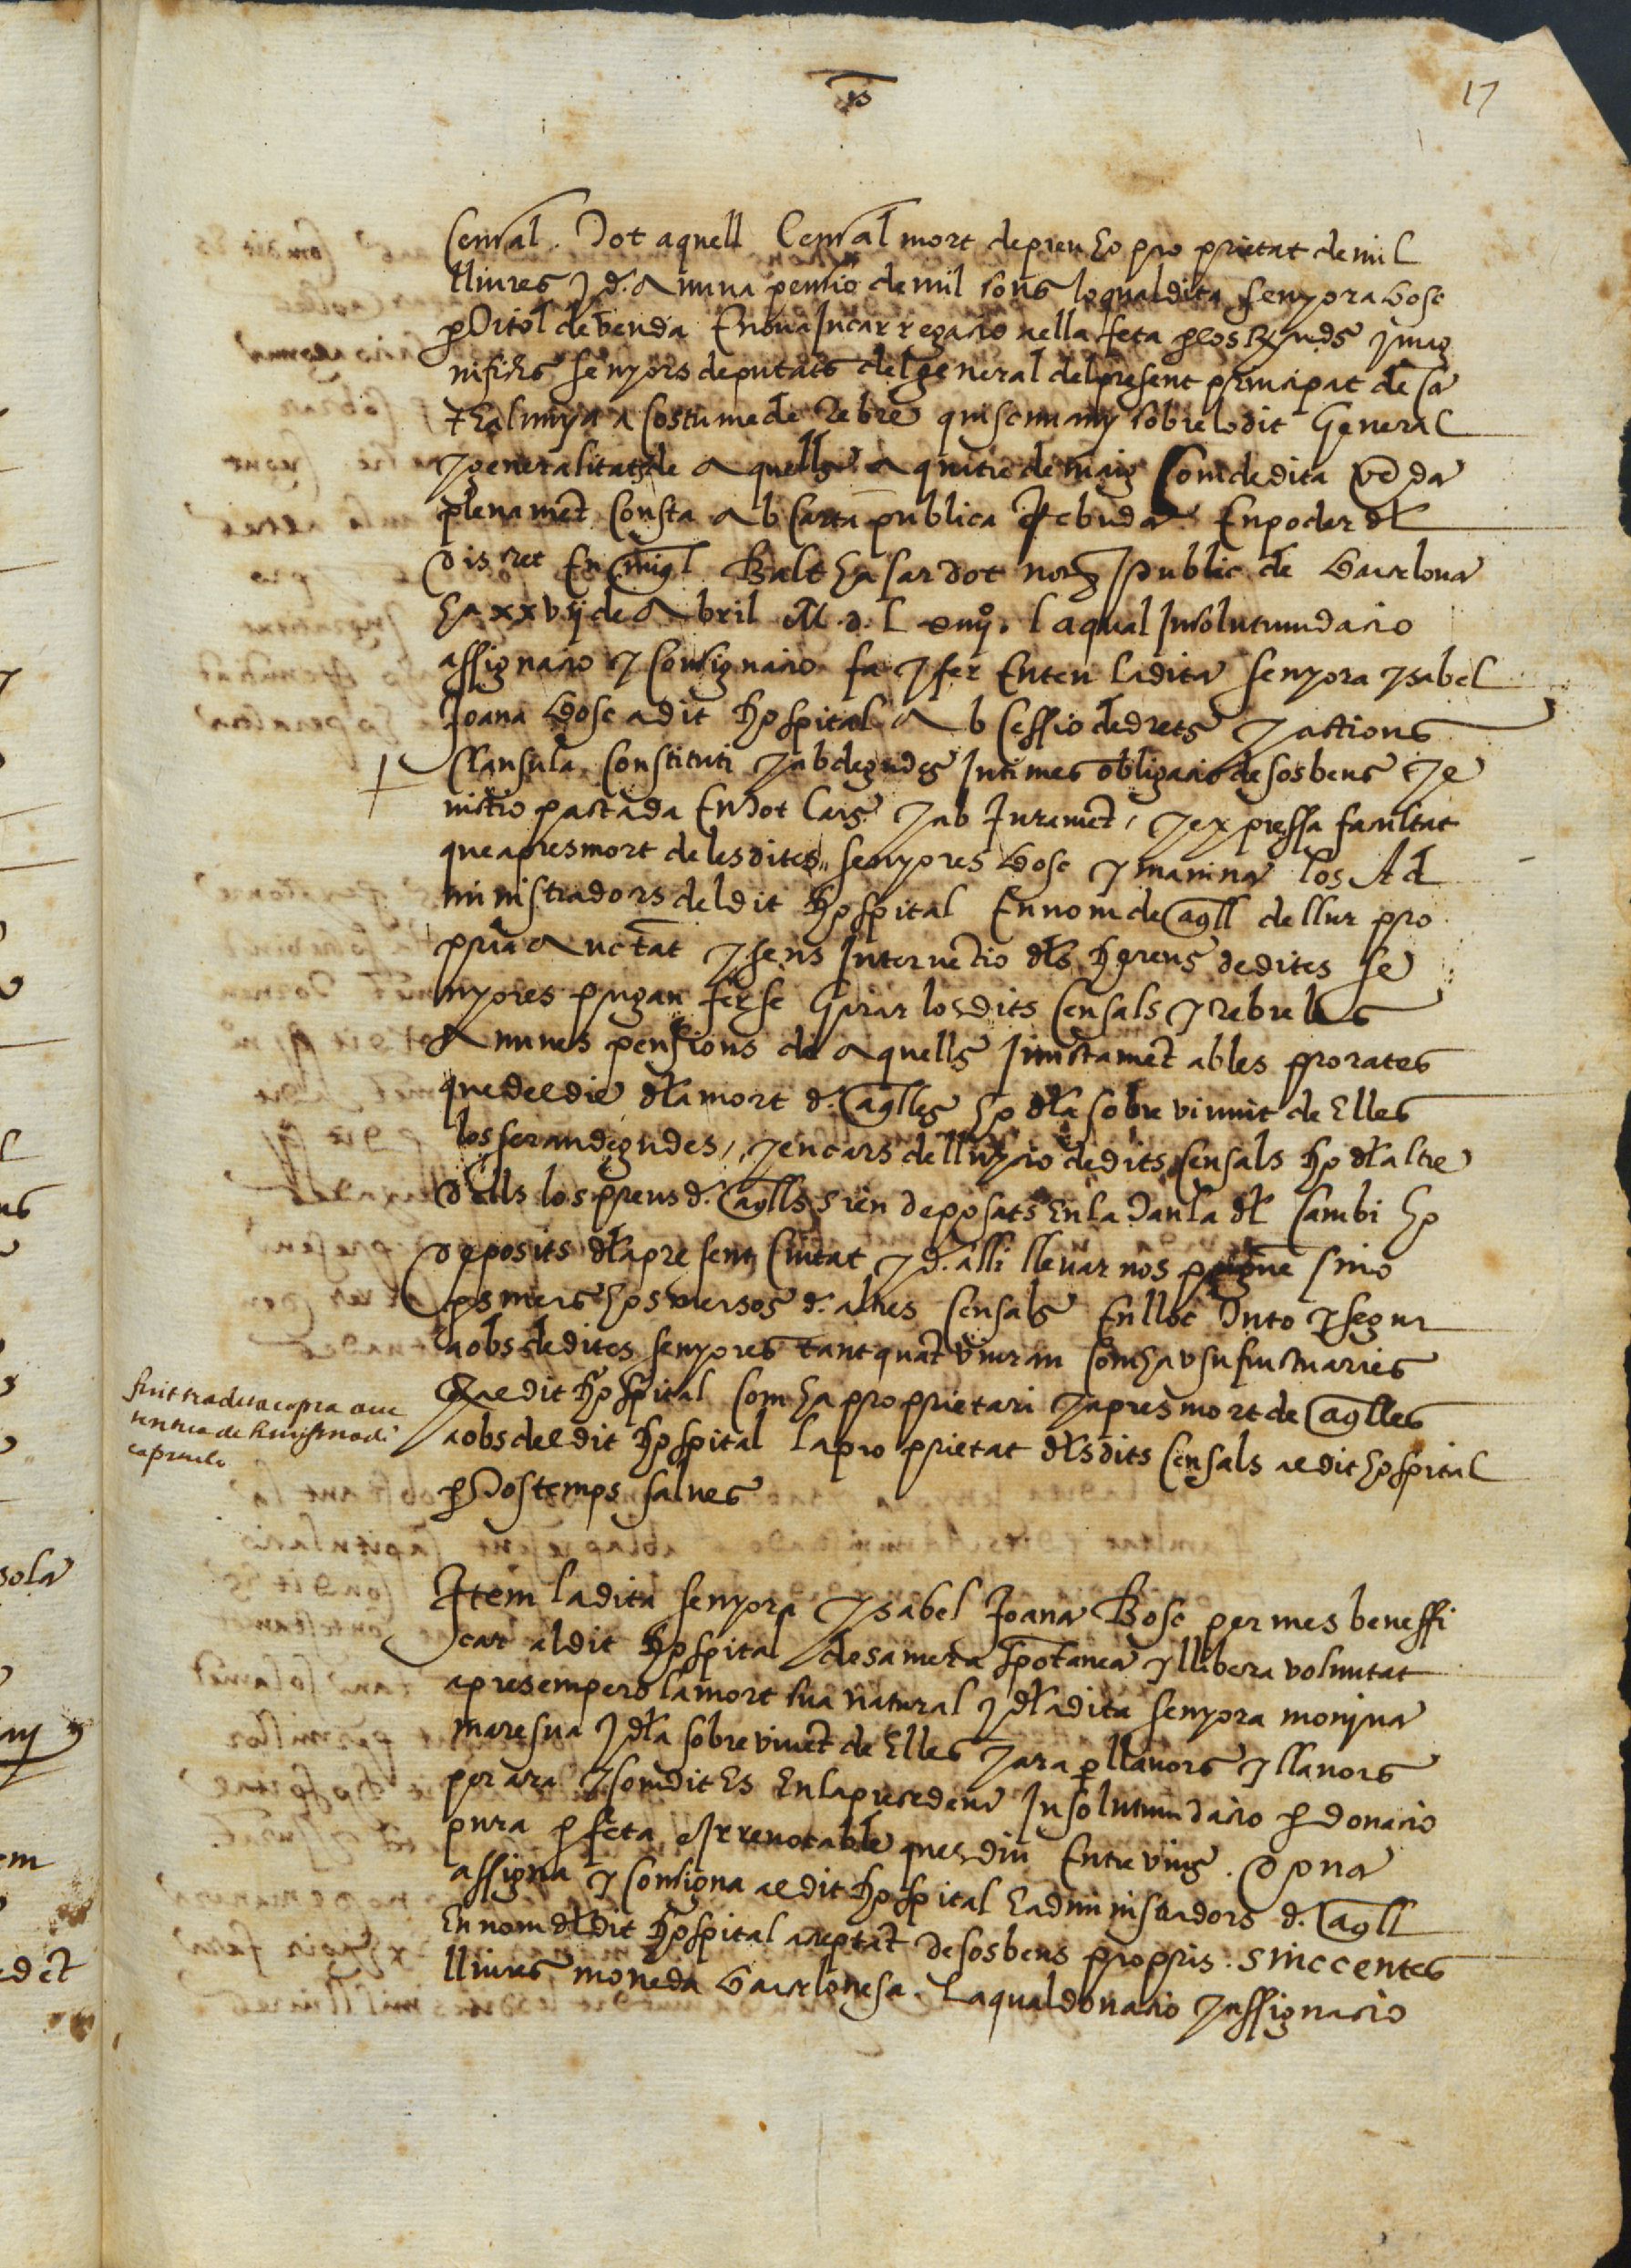 17
Censal. Tot aquell Censal mort de preu ho proprietat de mil
lliures y d. annua pensio de mil sous lo qual dita senyora Bosc
p titol de venda E nova Incarregacio a ella feta p los Rnds y mag
nifichs senyors deputats del general del present principat de Ca
thalunya acostuma de rebre quiscun any sobre lo dit General
y generalitats de aquell a quatre de maig Com de dita veda
plenamet consta ab carta publica rebuda En poder dl
discret En Migl Balthasar dot not public de Barcelona
ha xxvij de Abril M.D.L la qual Insolutumdacio
assignacio y consignacio fa y fer Enten la dita senyora ysabel
Joana Bosc a dit Hospital Ab cessio de drets y actions
Clausula Constituti y ab degudes Intimes obligacio de sos bens y e
victio pactada En tot cars y ab Jurament, y expressa facultat
que apres mort de les dites senyores Bosc y manina los Ad
ministradors del dit Hospital En nom de aqll de llur pro
pria auctat y sens Intervetio dls Hereus de dites se
nyores pugan fer se Girar los dits Censals y rebre les
Annues pensions de aquells Junctamet ab les prorates
que del die dla mort d. aqlles ho dla sobrevivint de Elles
los seran degudes, y en cars de lluycio de dits censals ho dl altre
dells los preus d. aqlls sien deposats En la Taula dl Cambi ho
deposits dla present Ciutat y d. alli llevar nos sino
p smers hosmersos d. altres Censals En lloc Tuto y segur
a obs de dites senyores tant quat viuran com ha usufructuaries
E al dit Hospital com ha proprietari y apres mort de aqlles
a obs del dit Hospital la proprietat dls dits Censals al dit hospital
p Tostemps salves
fuit tradita copia auc
tentica de huiusmodi
capitulo
Item la dita senyora Ysabel Joana Bosc per mes beneffi
car al dit Hospital de sa mera spotanea y llibera voluntat
apres empero la mort sua natural y dla dita senyora monjna
mare sua y dla sobrevivet de Elles y ara p llavors y llavors
per ara y com dit Es En la precedent Insolutumdacio p donacio
pura pfeta e Irrevocable ques diu Entre vius. dona
assigna y consigna al dit Hospital E administradors d. aqll
En nom dl dit Hospital aceptat de sos bens propris. sinccentes
lliures moneda Barcelonesa. La qual donacio y assignacio